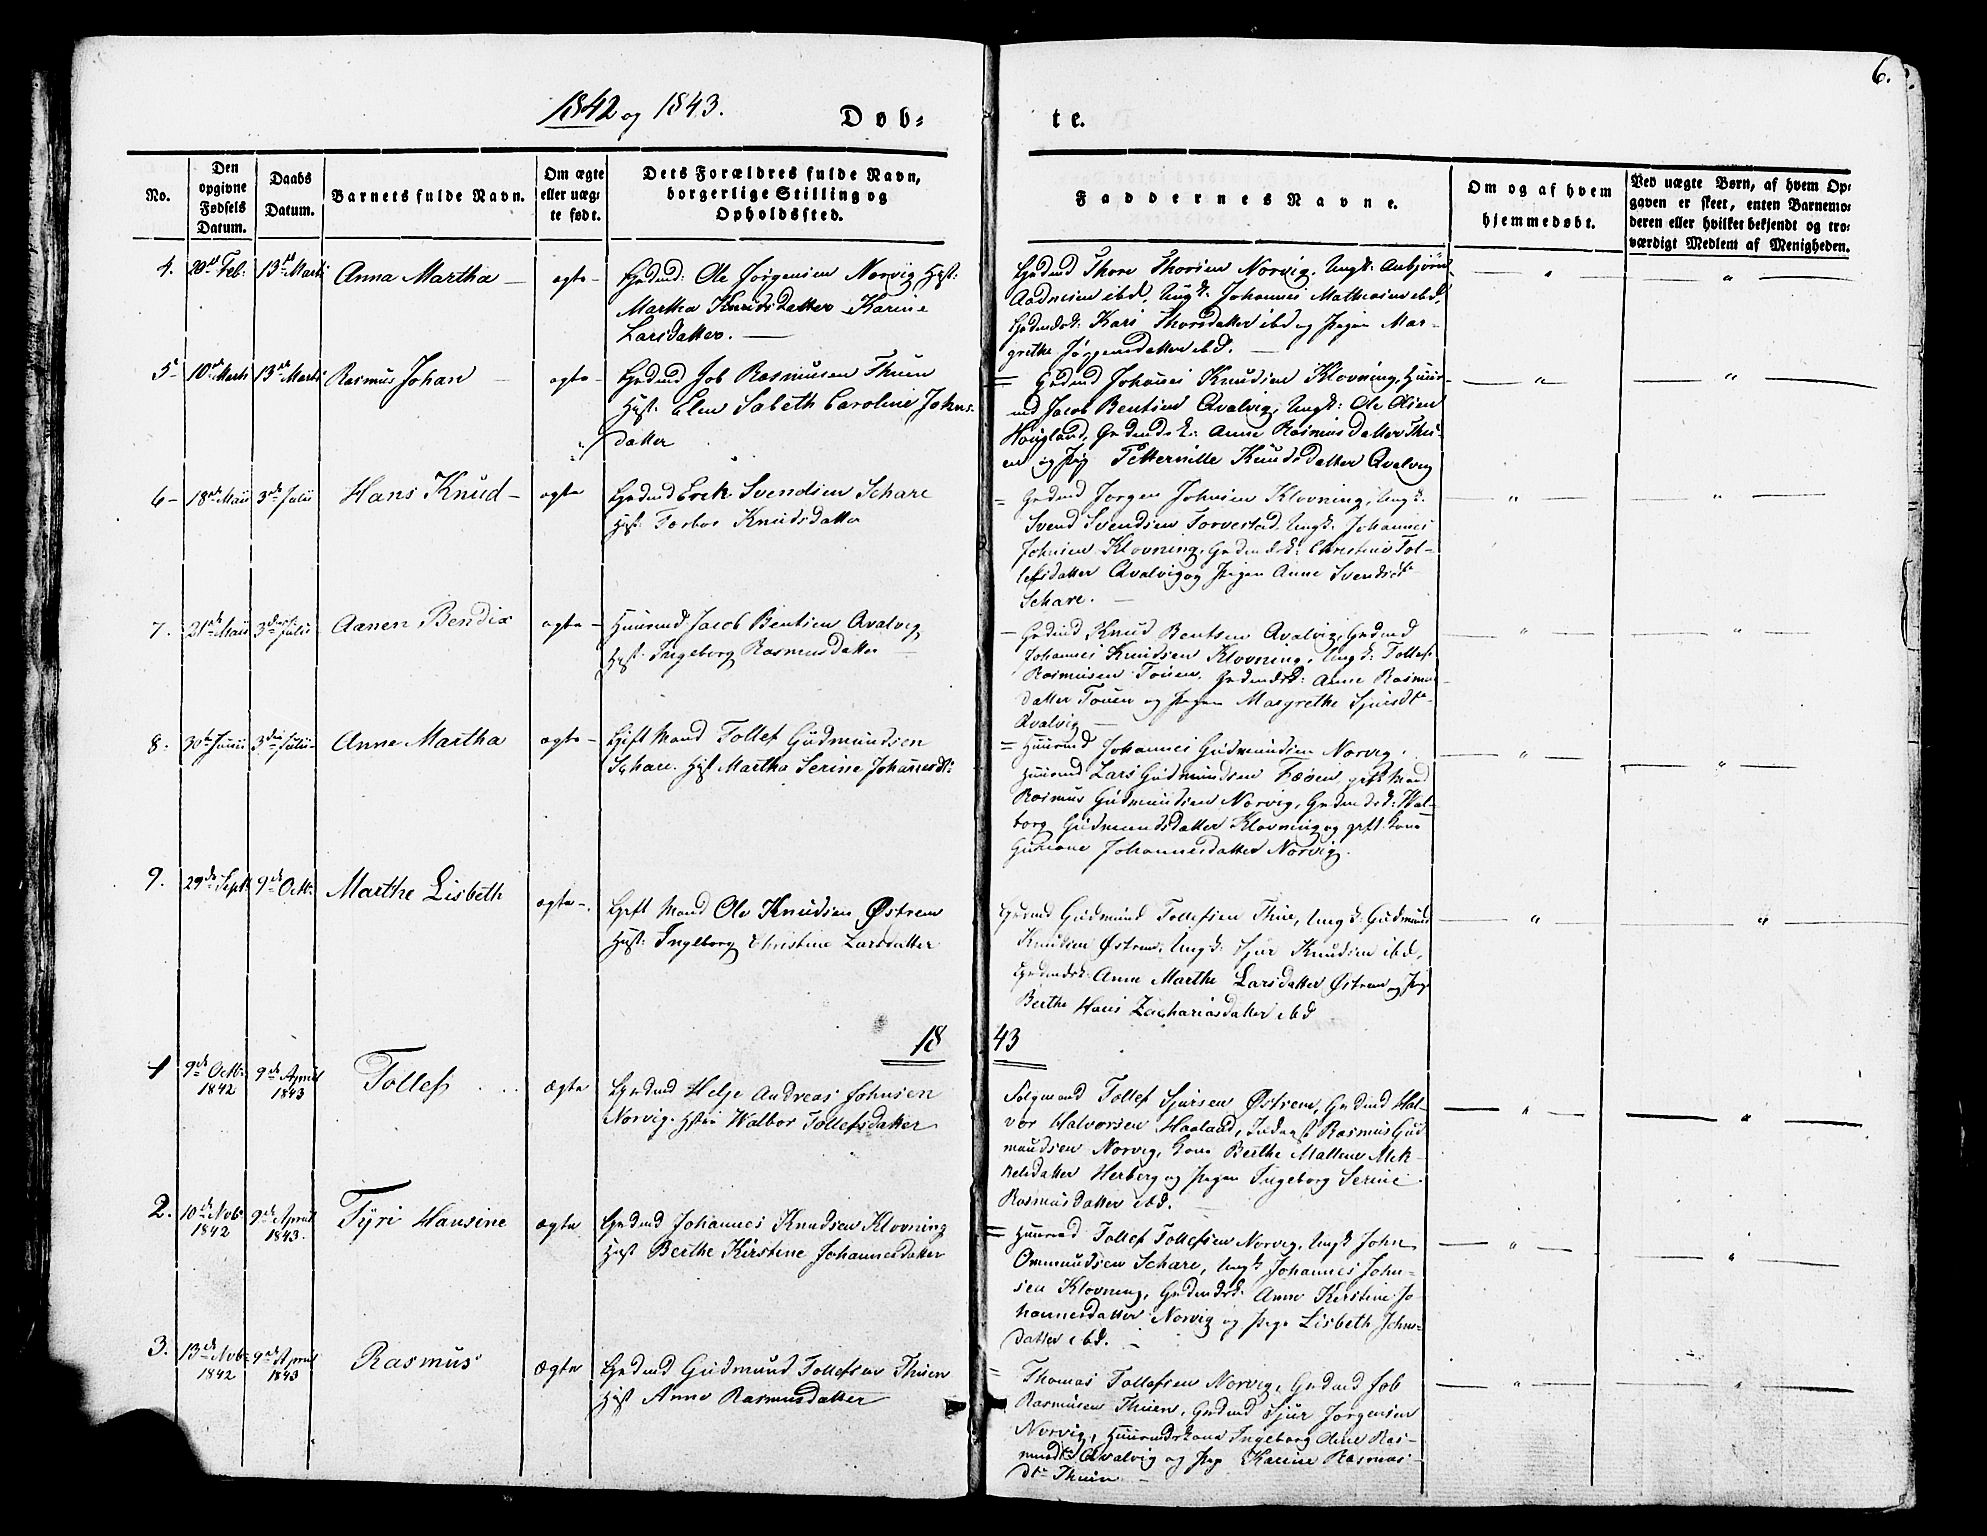 6.
1842 og 1843.
Døb-
te.
No.
Den opgivne Fødsels Datum.
Daabs Datum.
Barnets fulde Navn.
Om ægte eller uægte født.
Dets Forældres fulde Navn, borgerlige Stilling og Opholdssted.
Faddernes Navne.
Om og af hvem hjemmedøbt.
Ved uægte Børn, af hvem Opgaven er skeet, enten Barnemoderen eller hvilket bekjendt og troværdigt Medlem af Menigheden.
4. 20de Feb: 13de Marti Anna Martha ægte Grdmd: Ole Jørgensen Norvig Hst:
Martha Knudsdatter Karine
Larsdatter.
Grdmd Thore Thorsen Norvig, Ungk: Anbjørn
Aadnesen ibd, Ungk: Johannes Mathiasen ibd,
Kari Thorsdatter ibd og Pigen Mar-
grethe Jørgensdatter ibd.
5 10de Marti 13de Marti Rasmus Johan ægte Grdmd Job Rasmusen Thuen
Hst: Elen Sabeth Caroline Johns-
datter
Grdmd Johanes Knudsen Klovning, Huus-
md Jacob Bentsen Qvalvig, Ungk: Ole Olsen
Hougland, Anne Rasmusdatter Thu-
en og Pig Petternille Knudsdatter Qvalvig
6 18de Maii 3de Julii Hans Knud ægte Grdmd Erek Svendsen Schare
Hst: Torbor Knudsdatter
Grdmd Jorgen Johnsen Klovning, Ungk:
Svend Svendsen Torvestad, Ungk: Johannes
Johnsen Klovning, Christine Tol-
lefsdatter Qvalvig og Pigen Anne Svendsdt
Schare.
7. 21de Maii 3de Julii Aanen Bendix ægte Huusmd Jacob Bentsen Qvalvig
Hst: Ingeborg Rasmusdatter
Grdmd Knud Bentsen Qvalvig, Grdmd
Johannes Knudsen Klovning, Ungk: Tollef
Rasmusen Touen, Anne Rasmus-
datter Touen og Pigen Margrethe Sjursdt
Qvalvig
8. 30te Junii 3die Julii Anne Martha ægte Gift Mand Tollef Gudmundsen
Schare. Hst Martha Serine Johannesdt:
Huusmd Johannes Gudmundsen Norvig,
Huusmd Lars Gudmundsen Fæøen, gift Mand
Rasmus Gudmundsen Norvig, Wal-
borg Gudmundsdatter Klovning og gift Kone
Guriane Johannesdatter Norvig.
9. 29de Sept: 9de Octb: Marthe Lisbeth ægte Gift Mand Ole Knudsen Østrem
Hst: Ingeborg Christine Larsdatter
Grdmd Gudmund Tollefsen Thue, Ungk: Gudmund
Knudsen Østrem, Ungk: Sjur Knudsen ibd,
Anne Marthe Larsdatter Østrem og Pige
Berthe Hans Zachariasdatter ibd
18 43
1 9de Octb: 1842 9de April 1843 Tollef ægte Grdmd Helje Andreas Johnsen
Norvig. Hstr Walbor Tollefsdatter
Tollef Sjursen Østrem, Grdmd Hal-
vor Halvorsen Haaland, Rasmus Gud-
mundsen Norvig, Kone Berthe Mallene Mik-
kelsdatter Herberg og Pigen Ingeborg Serine
Rasmusdatter ibd.
2. 10de Novb 1842 9de April 1843. Tyri Hansine ægte Grdmd Johannes Knudsen Klovning
Hst Berthe Kirstine Johannesdatter
Huusmd Tollef Tollefsen Norvig, Ungk John
Ommundsen Schare, Ungk Johannes John-
sen Klovning, Anne Kirstine Jo-
hannesdatter Norvig og Pige Lisbeth Johns-
datter ibd.
3. 13de Novb 1842 9de April 1843 Rasmus ægte Grdmd Gudmund Tollefsen Thuen
Hst Anne Rasmusdatter
Thomas Tollefsen Norvig, Grdmd Job
Rasmusen Thuen, Grdmd Sjur Jorgensen
Norvig, Huusmdskone Ingeborg Oline Ras-
musdt Qvalvig og Pige Karine Rasmus-
dtr Thuen